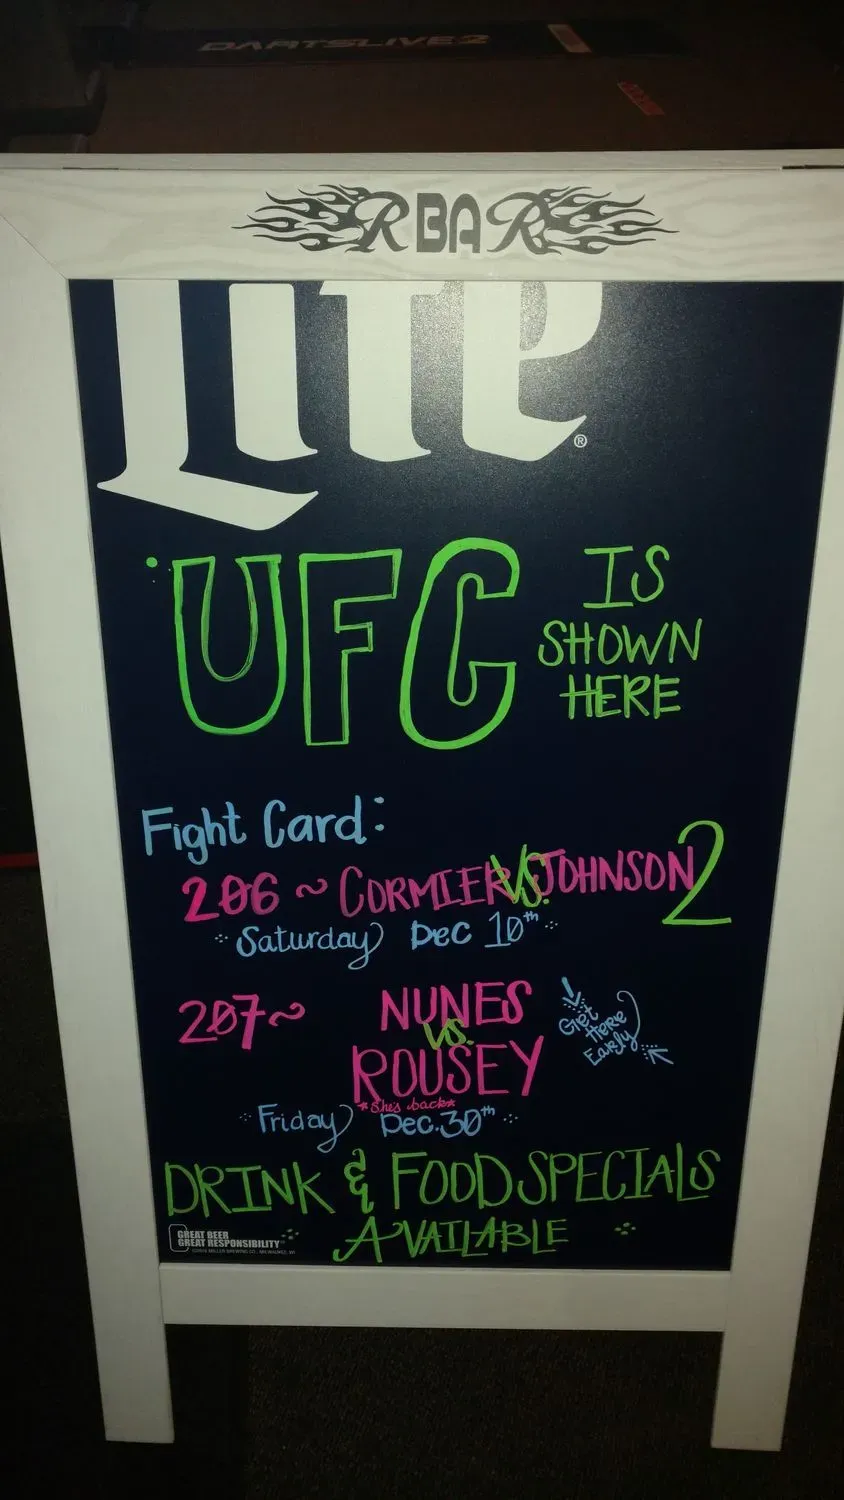 DARTSLIVE2
R BAR
Lite®
UFC IS
SHOWN
HERE
Fight Card:
206 ~ CORMIER VS. JOHNSON 2
Saturday Dec 10th
207~ NUNES
VS.
ROUSEY
Get
Here
Early
*She's back*
Friday Dec. 30th
DRINK & FOOD SPECIALS
AVAILABLE
GREAT BEER
GREAT RESPONSIBILITY